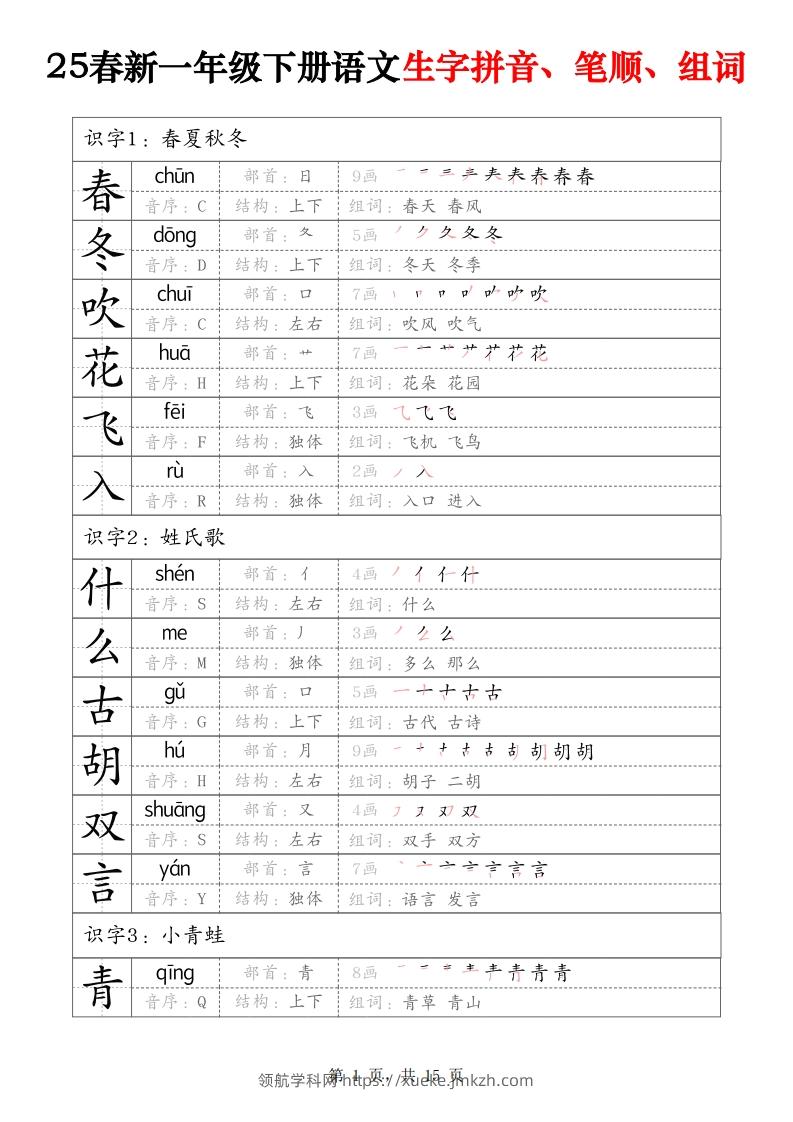 25春新一年级下册语文生字拼音、笔顺、组词
识字1：春夏秋冬
春 chūn 部首：日 9画
音序：C 结构：上下 组词：春天 春风
冬 dōng 部首：夂 5画
音序：D 结构：上下 组词：冬天 冬季
吹 chuī 部首：口 7画
音序：C 结构：左右 组词：吹风 吹气
花 huā 部首：艹 7画
音序：H 结构：上下 组词：花朵 花园
飞 fēi 部首：飞 3画
音序：F 结构：独体 组词：飞机 飞鸟
入 rù 部首：入 2画
音序：R 结构：独体 组词：入口 进入
识字2：姓氏歌
什 shén 部首：亻 4画
音序：S 结构：左右 组词：什么
么 me 部首：丿 3画
音序：M 结构：独体 组词：多么 那么
古 gǔ 部首：口 5画
音序：G 结构：上下 组词：古代 古诗
胡 hú 部首：月 9画
音序：H 结构：左右 组词：胡子 二胡
双 shuāng 部首：又 4画
音序：S 结构：左右 组词：双手 双方
言 yán 部首：言 7画
音序：Y 结构：独体 组词：语言 发言
识字3：小青蛙
青 qīng 部首：青 8画
音序：Q 结构：上下 组词：青草 青山
第 1 页，共 15 页
领航学科网 https://xueke.jmkzh.com